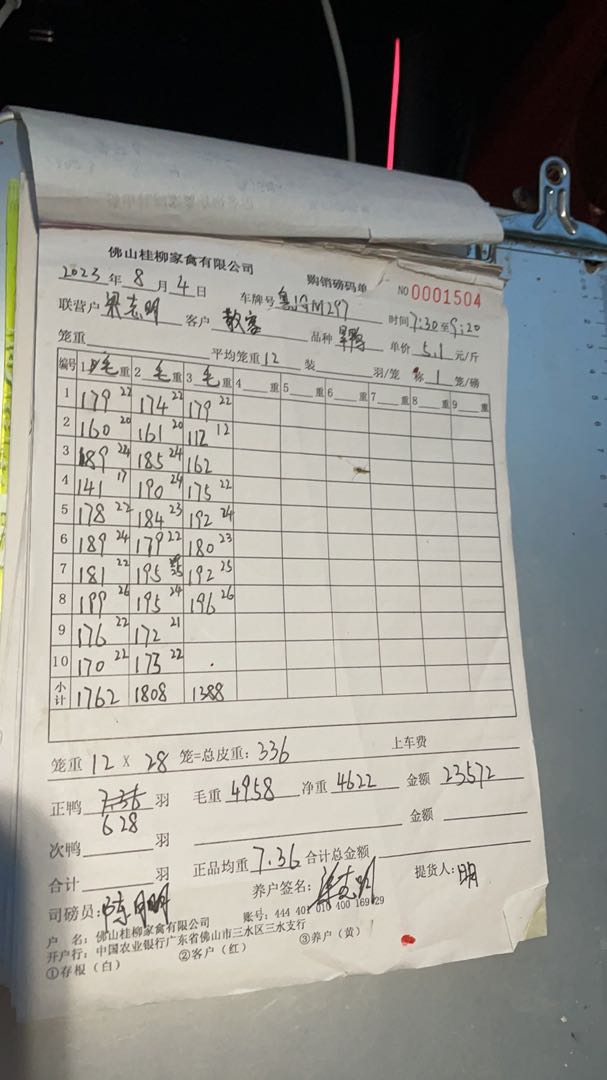 佛山桂柳家禽有限公司 购销磅码单 NO 0001504
2023 年 8 月 4 日 车牌号 M297 时间 7:30 至 9:20
联营户 梁志明 客户 散客 品种 单价 5.1 元/斤
笼重 平均笼重 12 装 羽/笼 称 1 笼/磅
编号 1 毛 重 2 毛 重 3 毛 重 4 重 5 重 6 重 7 重 8 重 9 重
1 179 22 174 22 179 22
2 160 20 161 20 112 12
3 189 24 185 24 162
4 141 17 190 24 175 22
5 178 22 184 23 192 24
6 189 24 179 22 180 23
7 181 22 195 25 192 25
8 199 26 195 24 196 26
9 176 22 172 21
10 170 22 173 22
小计 1762 1808 1388
笼重 12 X 28 笼=总皮重: 336 上车费
正鸭 7.36 羽 毛重 4958 净重 4622 金额 23572
628
次鸭 羽 金额
合计 羽 正品均重 7.36 合计总金额
司磅员: 养户签名: 梁志明 提货人: 明
户 名: 佛山桂柳家禽有限公司 账号: 444 401 010 400 169 29
开户行: 中国农业银行广东省佛山市三水区三水支行
①存根（白） ②客户（红） ③养户（黄）